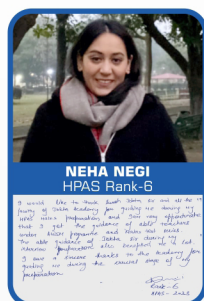 NEHA NEGI
HPAS Rank-6
I would like to thank Sushil Sir and all the
faculty of Sakha Academy for guiding me during my
HPAS mains preparation, and I am very opportunate
that I got the guidance of able teachers
under programme and Mains test series.
The able guidance of Sir during my
interview preparation also helped me a lot.
I owe a sincere thanks to the academy for
guiding me during the crucial stage of my
preparation.
Rank-6
HPAS-2023